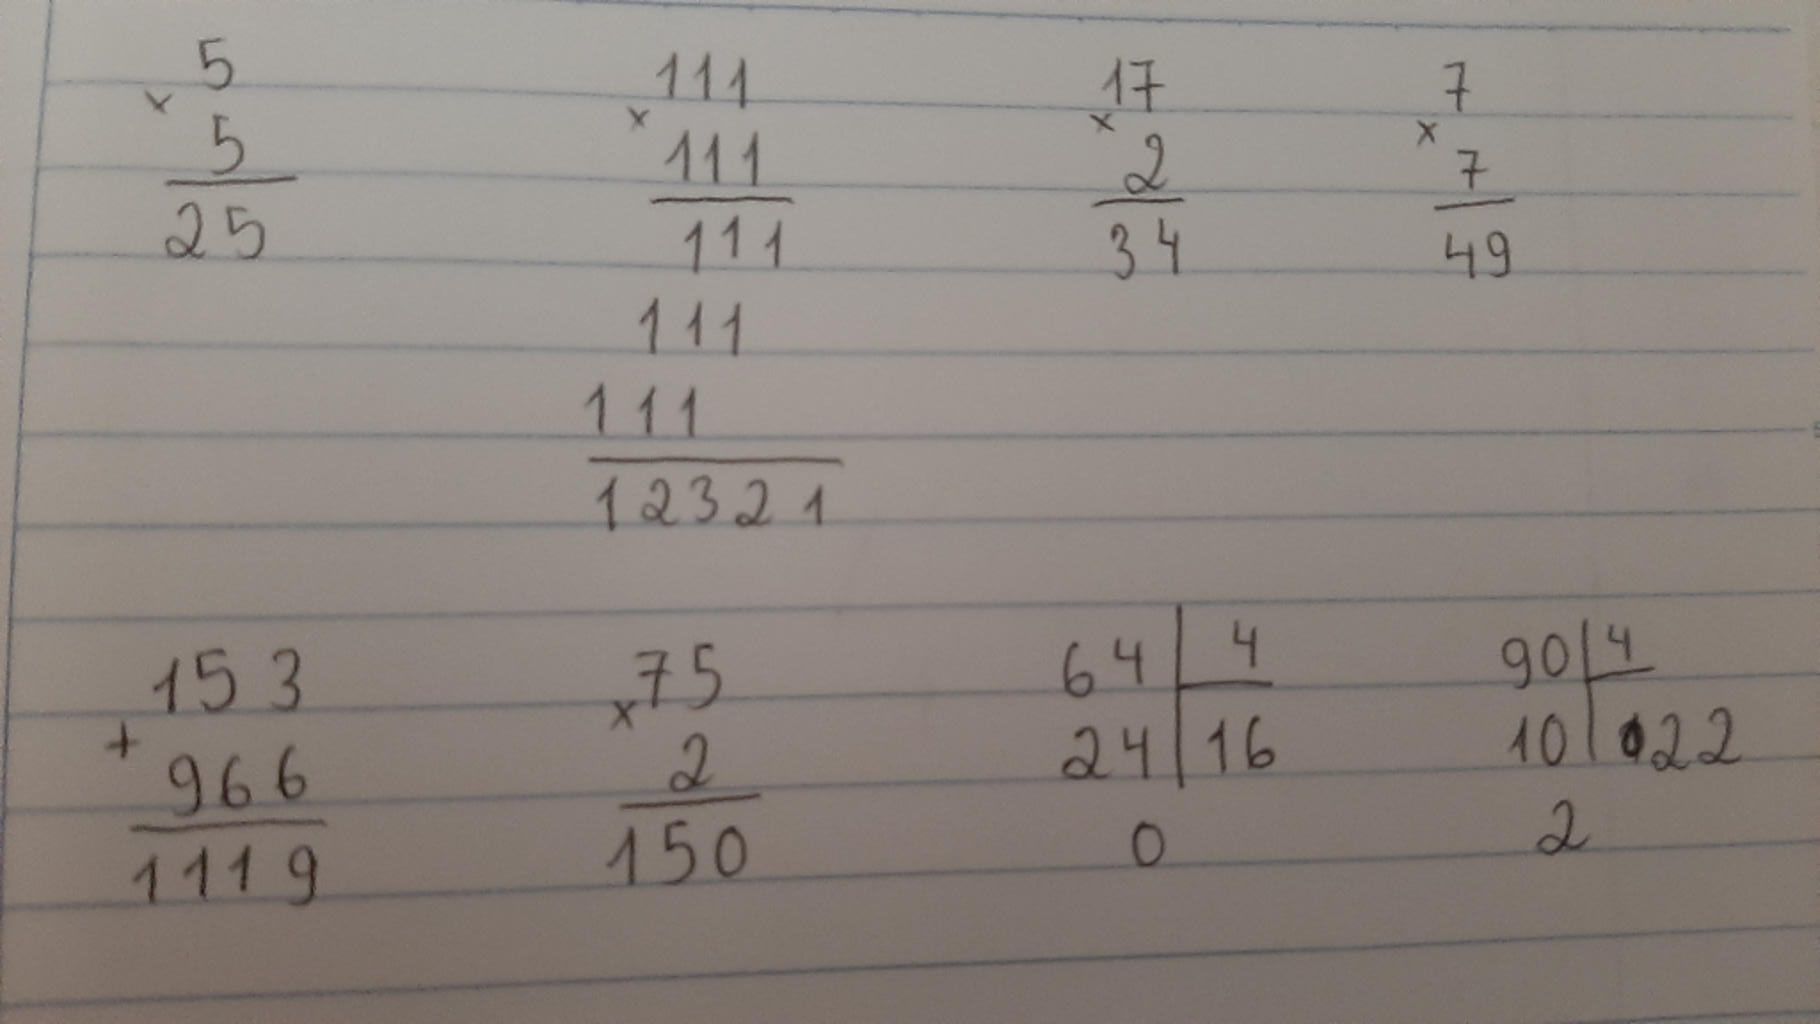 5
× 5
25
111
× 111
111
111
111
12321
17
× 2
34
7
× 7
49
153
+ 966
1119
75
× 2
150
64 | 4
24 | 16
0
90 | 4
10 | 22
2